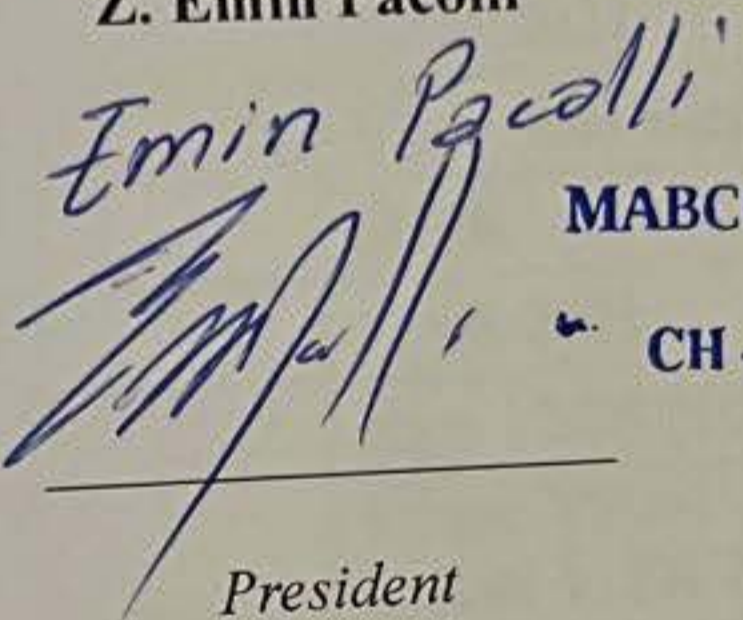 Z. Emin Pacolli
Emin Pacolli
MABC
CH
President